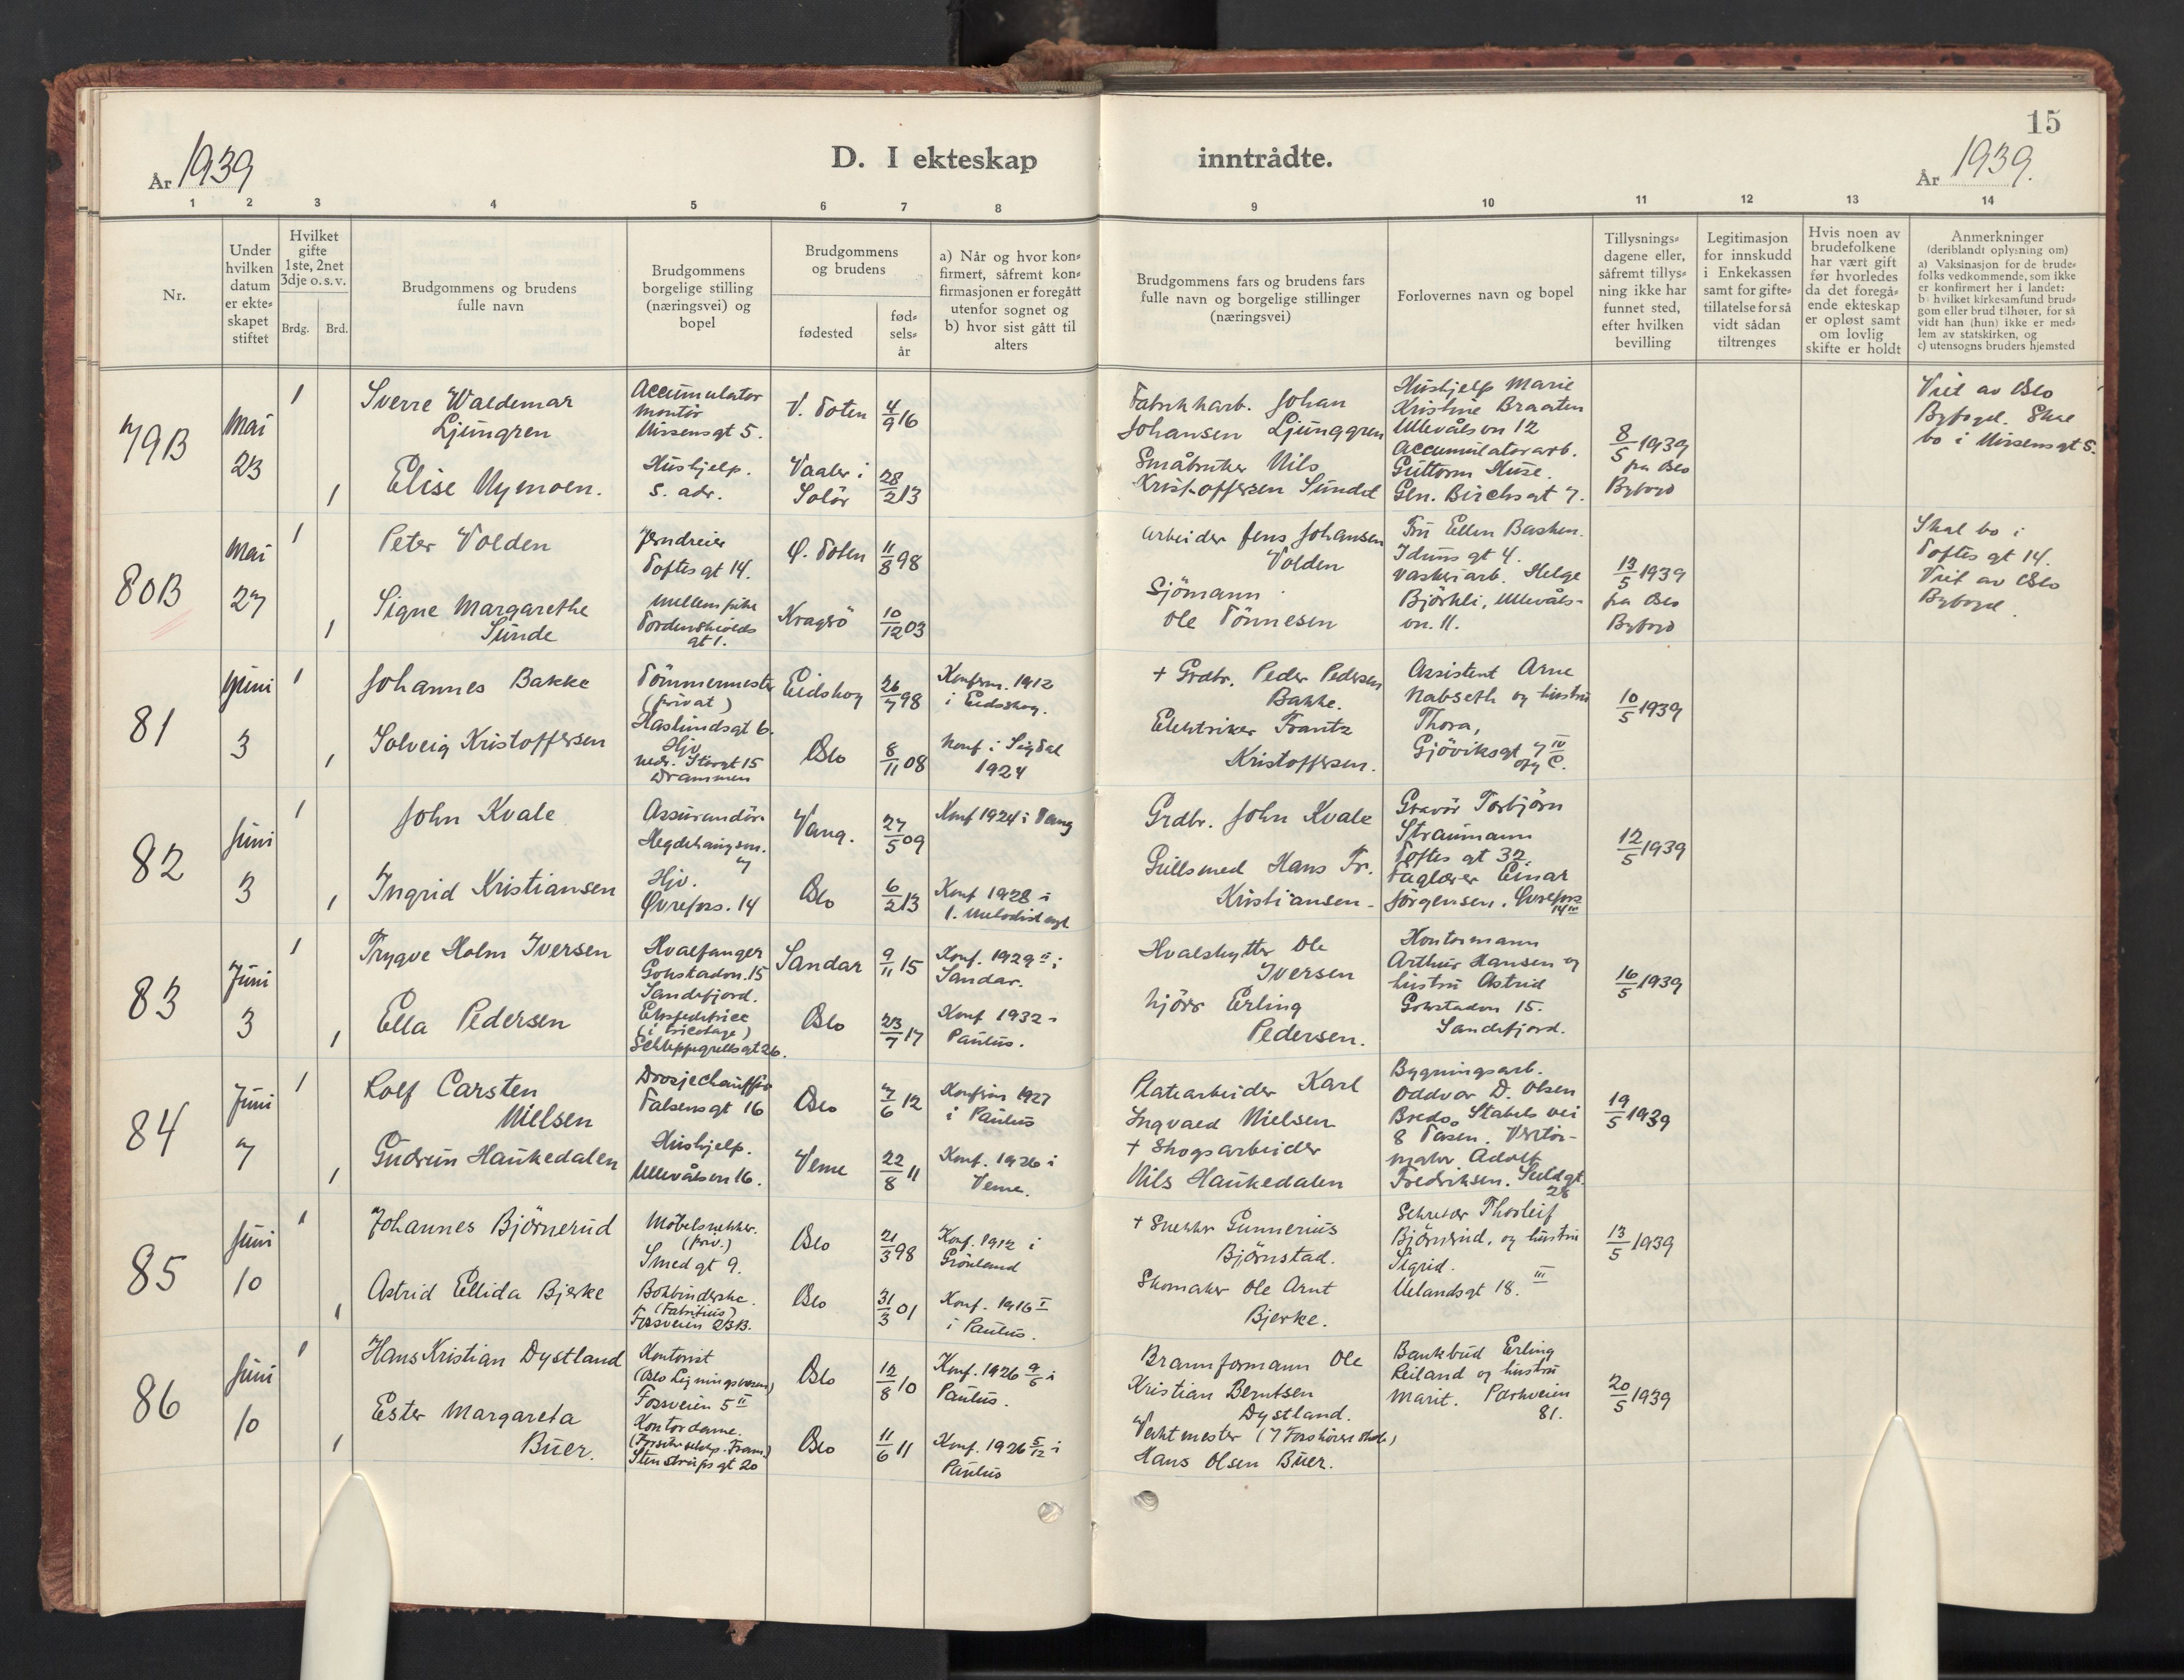 15
År 1939
D. I ekteskap inntrådte.
År 1939.
1 2 3 4 5 6 7 8 9 10 11 12 13 14
Nr.
Under hvilken datum er ekte-skapet stiftet
Hvilket gifte 1ste, 2net 3dje o.s.v.
Brdg. Brd.
Brudgommens og brudens fulle navn
Brudgommens borgelige stilling (næringsvei) og bopel
Brudgommens og brudens
fødested
fød-sels-år
a) Når og hvor kon-firmert, såfremt kon-firmasjonen er foregått utenfor sognet og b) hvor sist gått til alters
Brudgommens fars og brudens fars fulle navn og borgelige stillinger (næringsvei)
Forlovernes navn og bopel
Tillysnings-dagene eller, såfremt tillys-ning ikke har funnet sted, efter hvilken bevilling
Legitimasjon for innskudd i Enkekassen samt for gifte-tillatelse for så vidt sådan tiltrenges
Hvis noen av brudefolkene har vært gift før hvorledes da det foregå-ende ekteskap er opløst samt om lovlig skifte er holdt
Anmerkninger (deriblandt oplysning om) a) Vaksinasjon for de brude-folks vedkommende, som ikke er konfirmert her i landet: b) hvilket kirkesamfund brud-gom eller brud tilhører, for så vidt han (hun) ikke er med-lem av statskirken, og c) utensogns bruders hjemsted
79B
Mai
23
1
Sverre Waldemar
Ljungren
Accumulator
montör
Nissensgt 5.
V. Toten
4/9 16
1
Elise Nymoen.
Hushjelp.
s. adr.
Vaaler i
Solör
28/2 13
Fabrikkarb. Johan
Johansen Ljunggren
Småbruker Nils
Kristoffersen Sundet
Hushjelp Marie
Kristine Braaten
Ullevålsvn 12
Accumulatorarb.
Guttorm Huse.
Gen. Birchsgt 7.
8/5 1939
fra Oslo
Byfogd
Viet av Oslo
Byfogd. Skal
bo i Nissensgt 5.
80B
Mai
27
1
Peter Volden
Jerndreier
Toftesgt 14.
Ø. Toten
11/8 98
1
Signe Margarethe
Sunde
Tordenskiolds
gt 1.
Kragerö
10/12 03
Arbeider Jens Johansen
Volden
Sjömann
Ole Tönnesen
Fru Ellen Basken.
Iduns gt 4.
Vaskeriarb. Helge
Björkli, Ullevåls-
vn. 11.
13/5 1939
fra Oslo
Byfogd
Skal bo i
Toftes gt 14.
Viet av Oslo
Byfogd.
81
Juni
3
1
Johannes Bakke
Tömmermester
(privat)
Haslundsgt 6.
Eidskog
26/7 98
Konfirm. 1912
i Eidskog.
1
Solveig Kristoffersen
Hjv
nedr. Storgt 15
Drammen
Oslo
8/11 08
Konf i Sigdal
1924
+ Grdbr. Peder Pedersen
Bakke.
Elektriker Frantz
Kristoffersen.
Assistent Arne
Nabseth og hustru
Thora,
Gjöviksgt 7 IV
opg C.
10/5 1939
82
Juni
3
1
John Kvale
Assurandör
Hegdehaugsvn.
7
Vang.
27/5 09
Konf 1924 i Vang
1
Ingrid Kristiansen
Hjv.
Øvrefoss. 14
Oslo
6/2 13
Konf 1928 i
1. Metodist
Grdbr. John Kvale
Gullsmed Hans Fr.
Kristiansen.
Gravör Torbjörn
Straumann
Toftes gt 32.
Faglærer Einar
Jörgensen. Øvrefoss
14 III
12/5 1939
83
Juni
3
1
Trygve Holm Iversen
Hvalfanger
Gokstadvn. 15
Sandefjord.
Sandar
9/11 15
Konf. 1929 i
Sandar.
1
Ella Pedersen
Ekspeditrice
(i tricotage)
Schleppegrellsgt 26.
Oslo
23/7 17
Konf 1932 i
Paulus.
Hvalskytter Ole
Iversen
Erling
Pedersen.
Kontormann
Arthur Hansen og
hustru Astrid
Gokstadvn 15.
Sandefjord.
16/5 1939
84
Juni
7
1
Rolf Carsten
Nielsen
Drosjechauffør
Falsensgt 16
Oslo
7/6 12
Konfirm 1927
i Paulus
1
Gudrun Haukedalen
Hushjelp.
Ullevålsvn 16.
Veme
22/8 11
Konf. 1926 i
Veme.
Platearbeider Karl
Ingvald Nielsen
+ Skogsarbeider
Nils Haukedalen
Bygningsarb.
Oddvar D. Olsen
Bredo Stabels vei
8 Tåsen. Verktöi-
maker Adolf
Fredriksen.
28
19/5 1939
85
Juni
10
1
Johannes Björnerud
Möbelsnekker.
(priv.)
Smedgt 9.
Oslo
21/3 98
Konf. 1912 i
Grönland
1
Astrid Ellida Bjerke
Bokbinderske.
(Fabritius)
Fossveien 23B.
Oslo
31/3 01
Konf. 1916 I
i Paulus.
+ Snekker Gunnerius
Björnstad.
Skomaker Ole Arnt
Bjerke.
Sekretær Thorleif
Björnerud, og hustru
Sigrid.
Uelandsgt 18. III
13/5 1939
86
Juni
10
1
Hans Kristian Dystland
Kontorist
(Oslo Ligningsvesen)
Fossveien 5 II
Oslo
12/8 10
Konf. 1926 i
Paulus.
1
Ester Margareta
Buer.
Kontordame.
(Forsikr.selsk. Fram)
Stenstrups gt 20
Oslo
11/6 11
Konf. 1926 5/12 i
Paulus
Brannformann Ole
Kristian Berntsen
Dystland.
Vaktmester
Hans Olsen Buer.
Bankbud Erling
Reiland og hustru
Marit. Parkveien
81.
20/5 1939